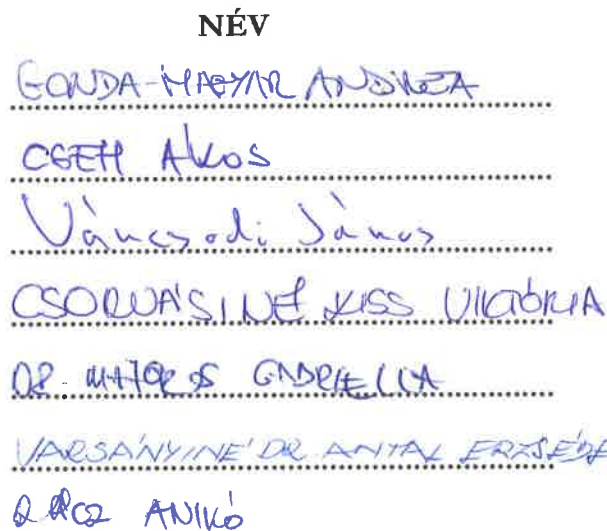 NÉV
GONDA-MAGYAR ANDREA
CSEH ÁKOS
Váncsodi János
CSORVÁSINÉ KISS VIKTÓRIA
DR. MAJOROS GABRIELLA
VARSÁNYINÉ DR ANTAL ERZSÉBE
RÁCZ ANIKÓ